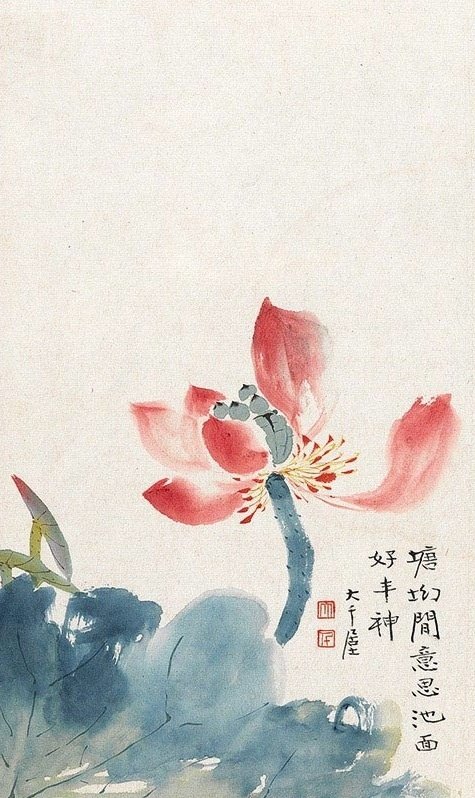 塘坳閒意思池面
好丰神
大千居士